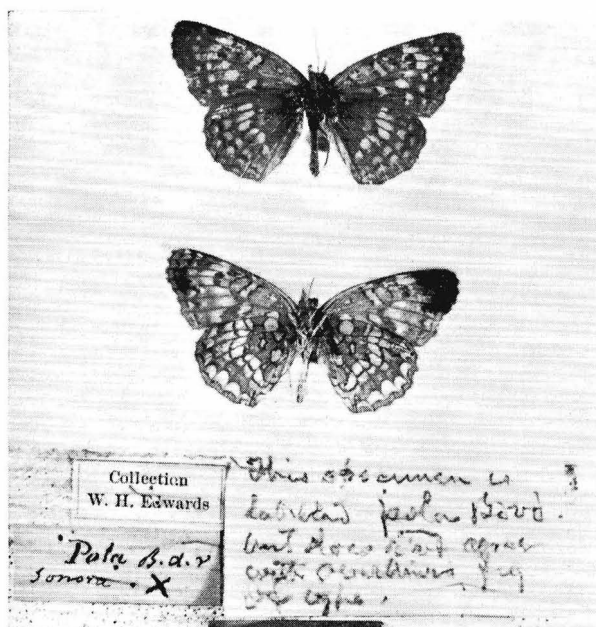 Collection
W. H. Edwards
Pola B.d.v
Sonora. X
This specimen is
labeled pola Bdvd.
but does not agree
with
or type.